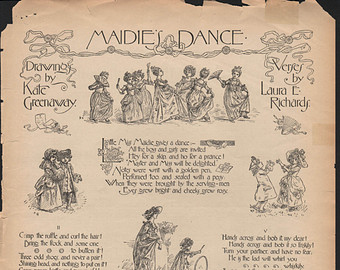 MAIDIE'S DANCE.
Drawings
by
Kate
Greenaway.
Verses
by
Laura E.
Richards.
Little Miss Maidie gives a dance:—
All the boys and girls are invited
Hey for a skip, and ho for a prance!
Master and Miss will be delighted.
Notes were writ with a golden pen,
Perfumed too and sealed with a posy
When they were brought by the serving-men
Eyes grew bright and cheeks grew rosy.
Crimp the ruffle and curl the hair!
Bring the frock, and some one
to button it!
Three odd stockings, and never a pair!
Shining head, and nothing to put on it!
Hands across and bob it my dear!
Hands across and bob it so friskily!
Turn your partner, and have no fear.
He is the lad will whirl you
whiskily.